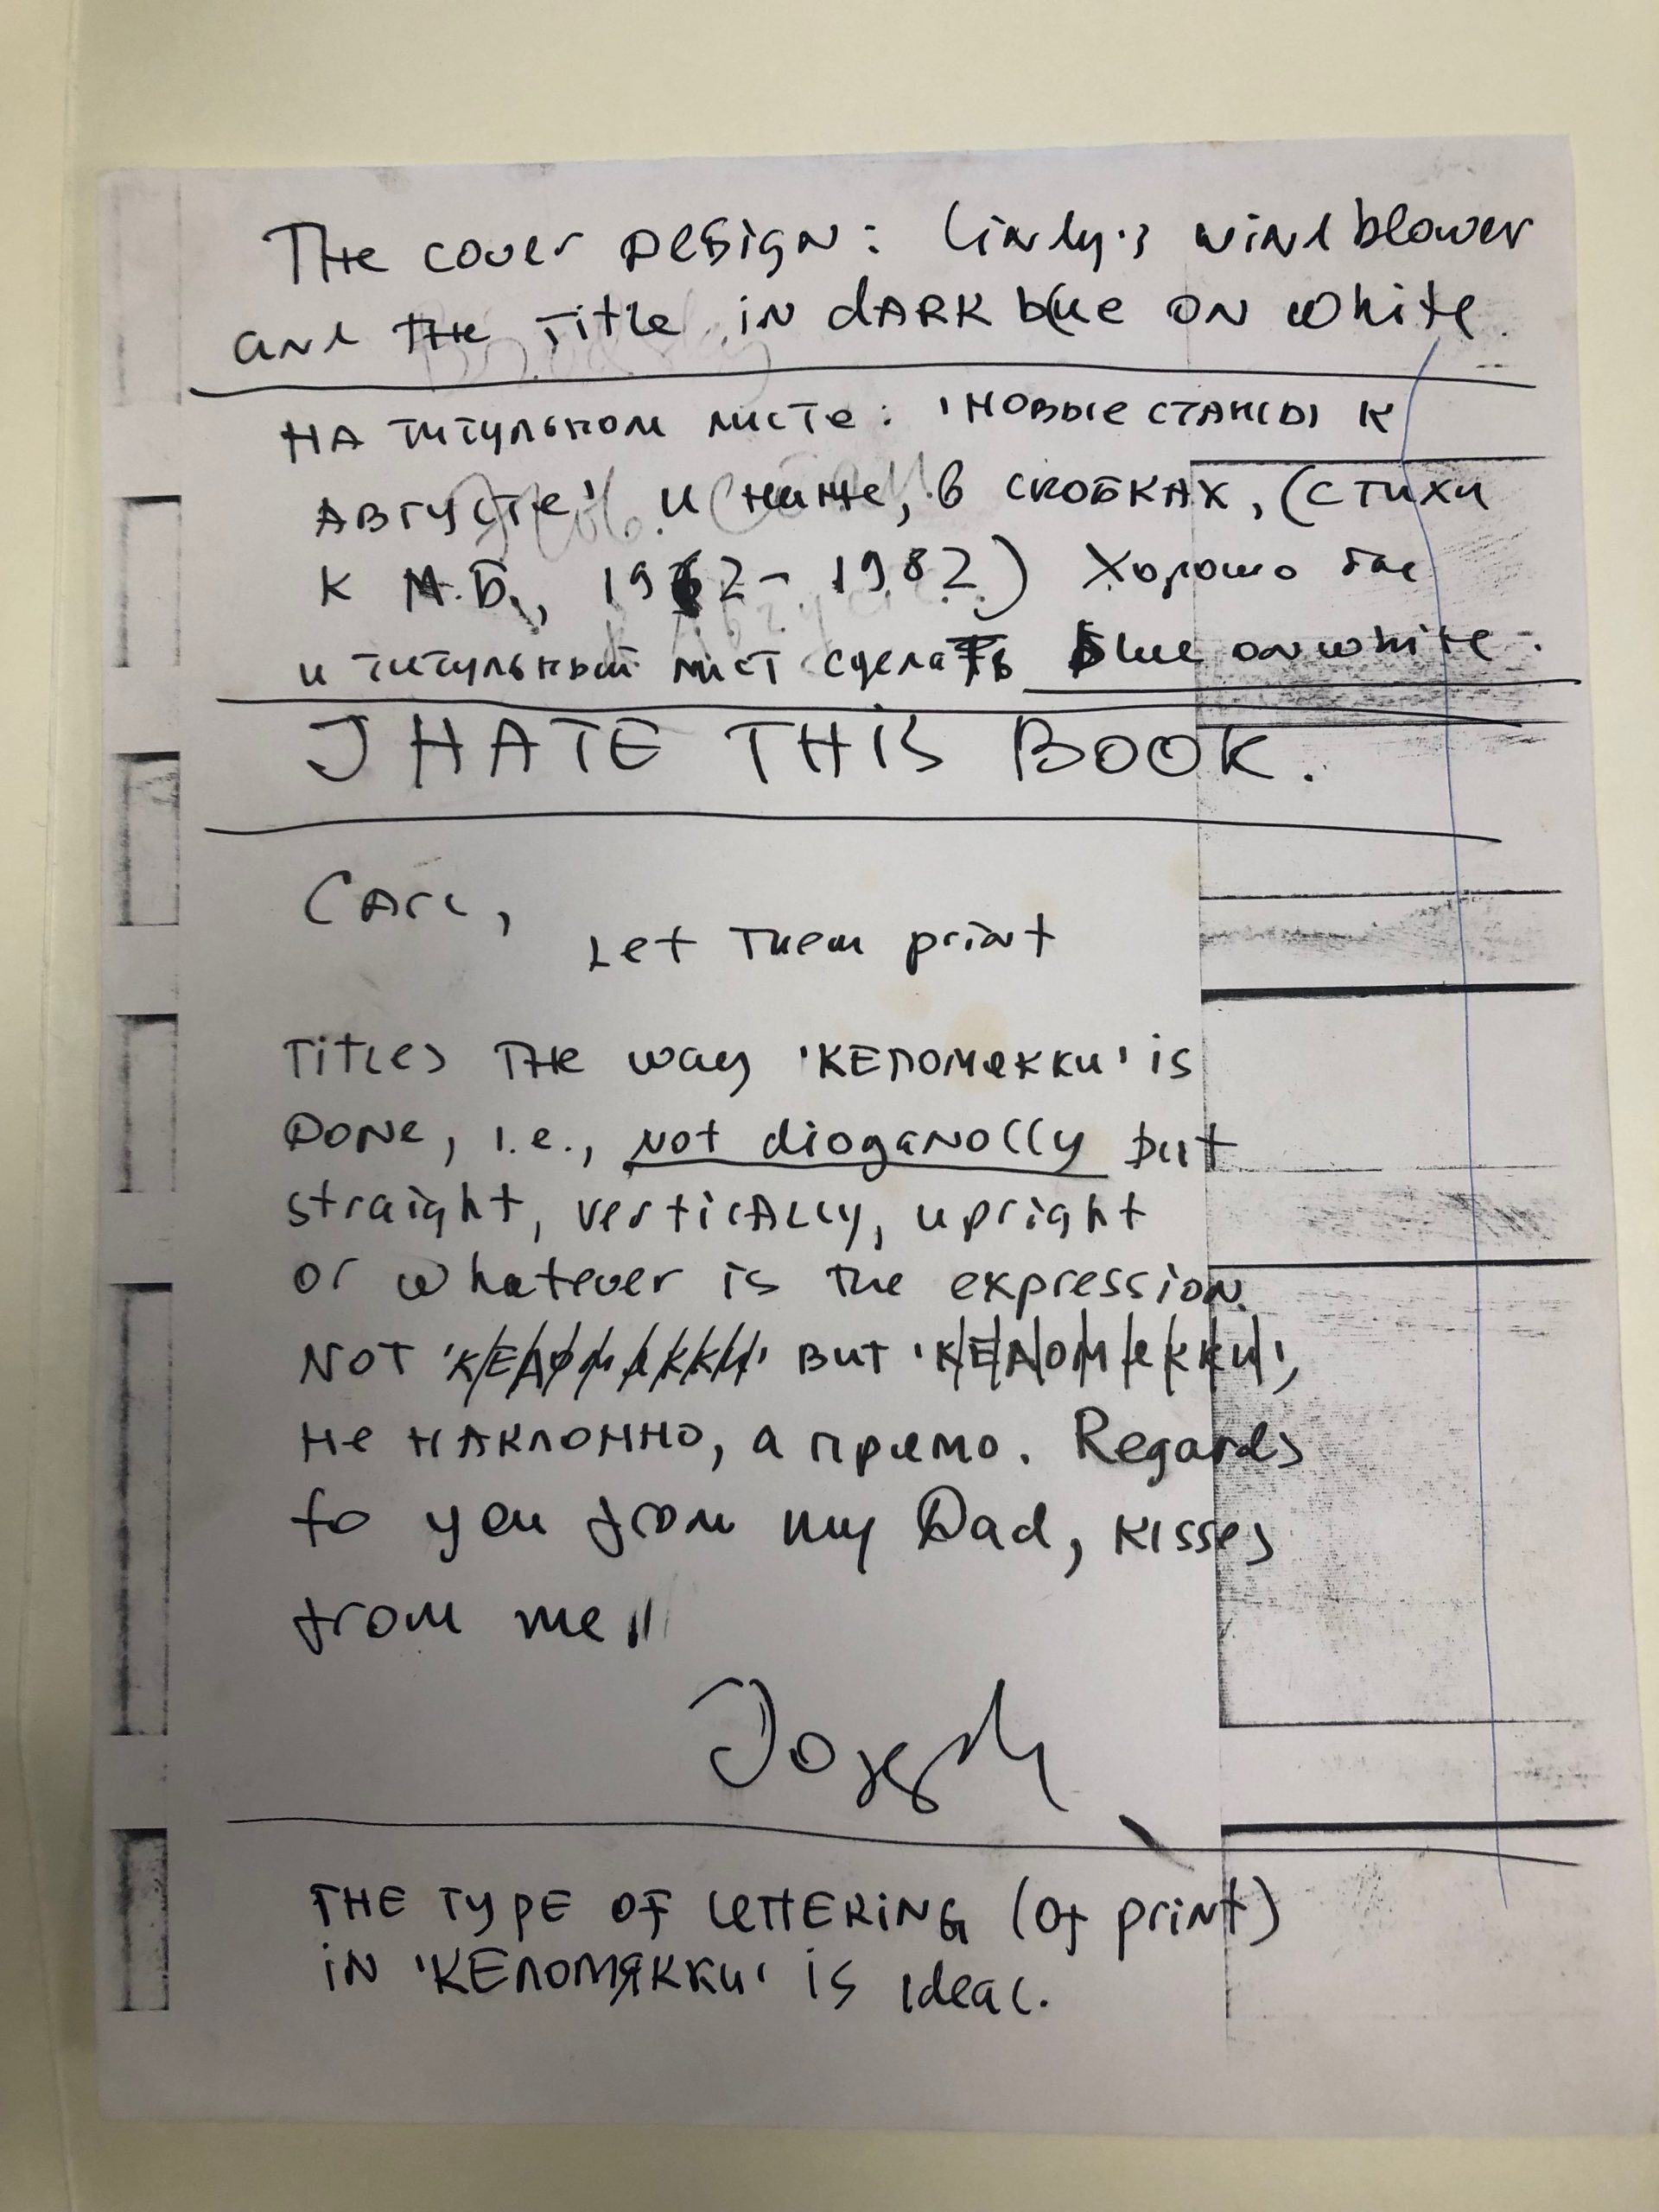 The cover design: Lindy's wind blower
and the title in dark blue on white.
На титульном листе: 'Новые стансы к
Августе' и ниже, в скобках, (стихи
к М.Б., 1962 - 1982) Хорошо бы
и титульный лист сделать blue on white.
I HATE THIS BOOK.
Carl,
Let them print
titles the way 'Келомякки' is
done, i.e., not dioganolly but
straight, vertically, upright
or whatever is the expression.
NOT 'КЕЛОМЯККИ' BUT 'КЕЛОМЯККИ',
не наклонно, а прямо. Regards
to you from my Dad, kisses
from me
Joseph
THE TYPE OF LETTERING (of print)
IN 'КЕЛОМЯККИ' is ideal.